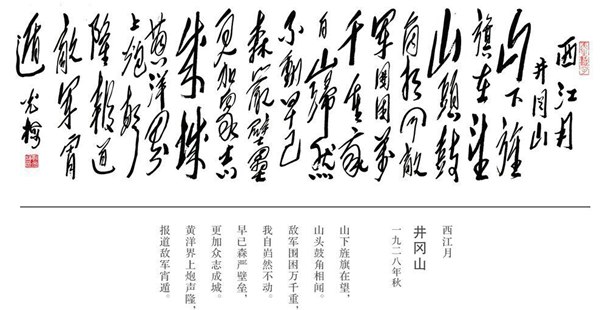 西江月
井冈山
山下旌
旗在望
山頭鼓
角相聞敵
軍圍困萬
千重我
自巋然
不動早已
森嚴壁壘
更加眾志
成城
黃洋界
上炮聲
隆報道
敵軍宵
遁
西江月
井冈山
一九二八年秋
山下旌旗在望，
山头鼓角相闻。
敌军围困万千重，
我自岿然不动。
早已森严壁垒，
更加众志成城。
黄洋界上炮声隆，
报道敌军宵遁。